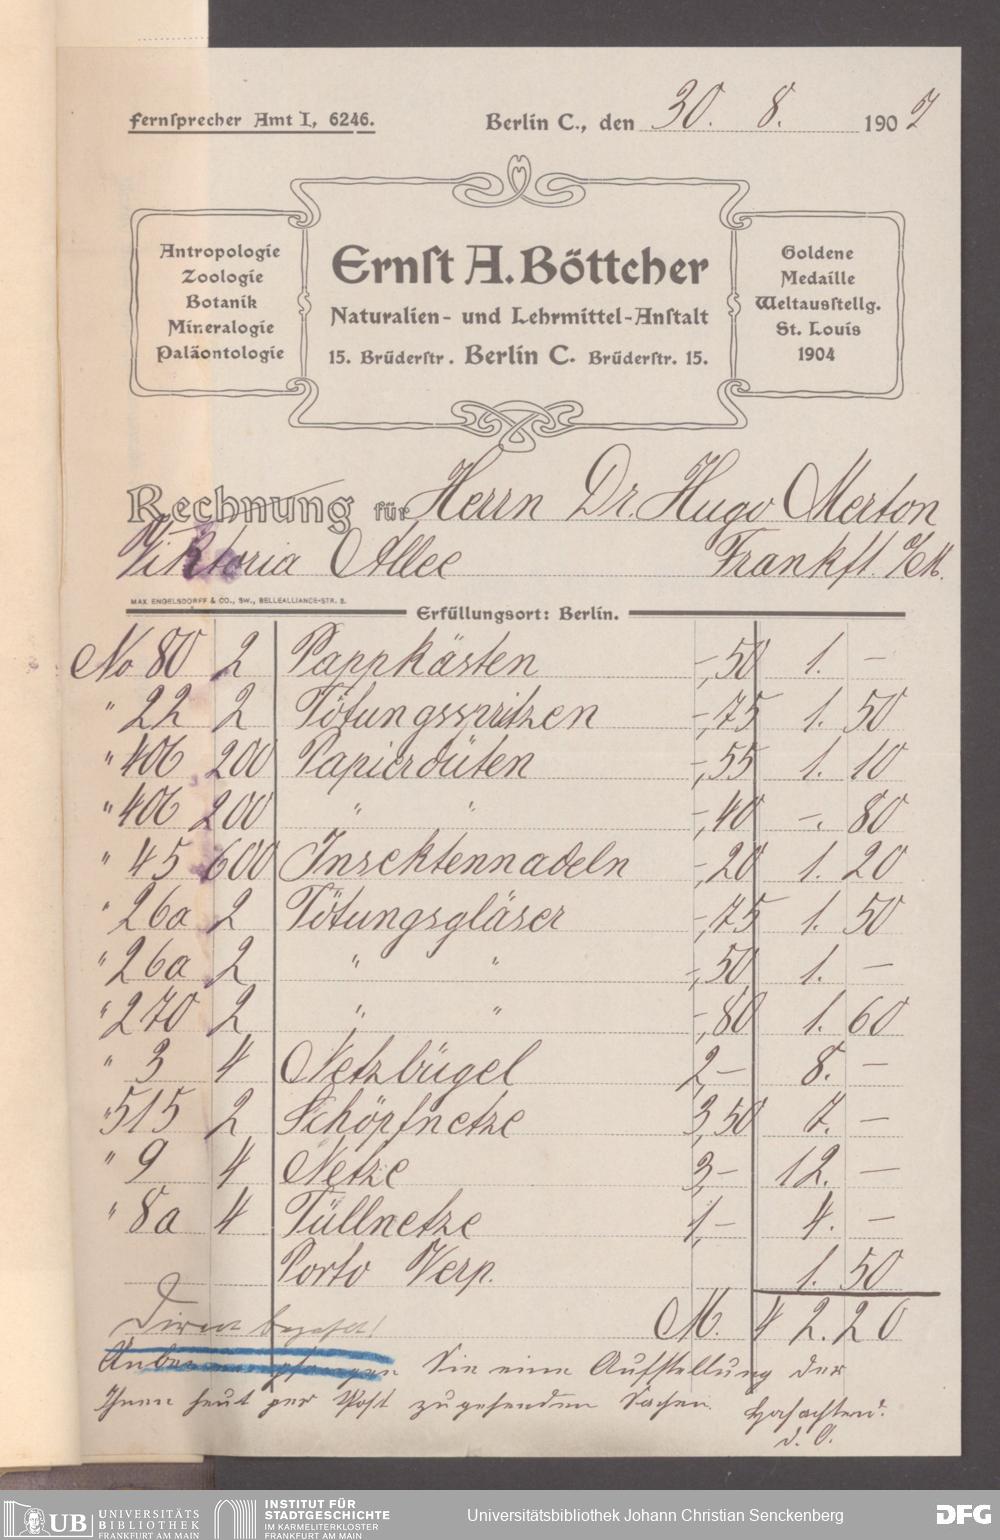 Fernsprecher Amt I, 6246.
Berlin C., den 30. 8. 1907
Antropologie
Zoologie
Botanik
Mineralogie
Paläontologie
Ernst A. Böttcher
Naturalien- und Lehrmittel-Anstalt
15. Brüderstr. Berlin C. Brüderstr. 15.
Goldene
Medaille
Weltausstellg.
St. Louis
1904
Rechnung für Herrn Dr. Hugo Merton
Viktoria Allee Frankft. a/M.
MAX ENGELSDORFF & CO., SW., BELLEALLIANCE-STR. 3.
Erfüllungsort: Berlin.
No 80 2 Pappkästen -,50 1. —
" 22 2 Tötungsspritzen -,75 1. 50
" 406 200 Papierdüten -,55 1. 10
" 406 200 " " -,40 -. 80
" 45 600 Insektennadeln -,20 1. 20
" 26a 2 Tötungsgläser -,75 1. 50
" 26a 2 " " -,50 1. —
" 270 2 " " -,80 1. 60
" 3 4 Netzbügel 2,- 8. —
" 515 2 Schöpfnetze 3,50 7. —
" 9 4 Netze 3,- 12. —
" 8a 4 Tüllnetze 1,- 4. —
Porto Verp. 1. 50
M. 42.20
Direct bezahlt!
Sie eine Aufstellung der
Ihnen heut per Post zugehenden Sachen.
Hochachtend.
d. O.
UB UNIVERSITÄTS
BIBLIOTHEK
FRANKFURT AM MAIN
INSTITUT FÜR
STADTGESCHICHTE
IM KARMELITERKLOSTER
FRANKFURT AM MAIN
Universitätsbibliothek Johann Christian Senckenberg
DFG